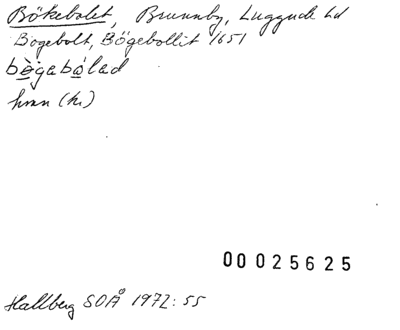 Bökebolet, Brunnby, Luggude hd
Bogebolt, Bögebollit 1651
bögabólad
hmn (kr)
00 025625
Hallberg SOÅ 1972:55